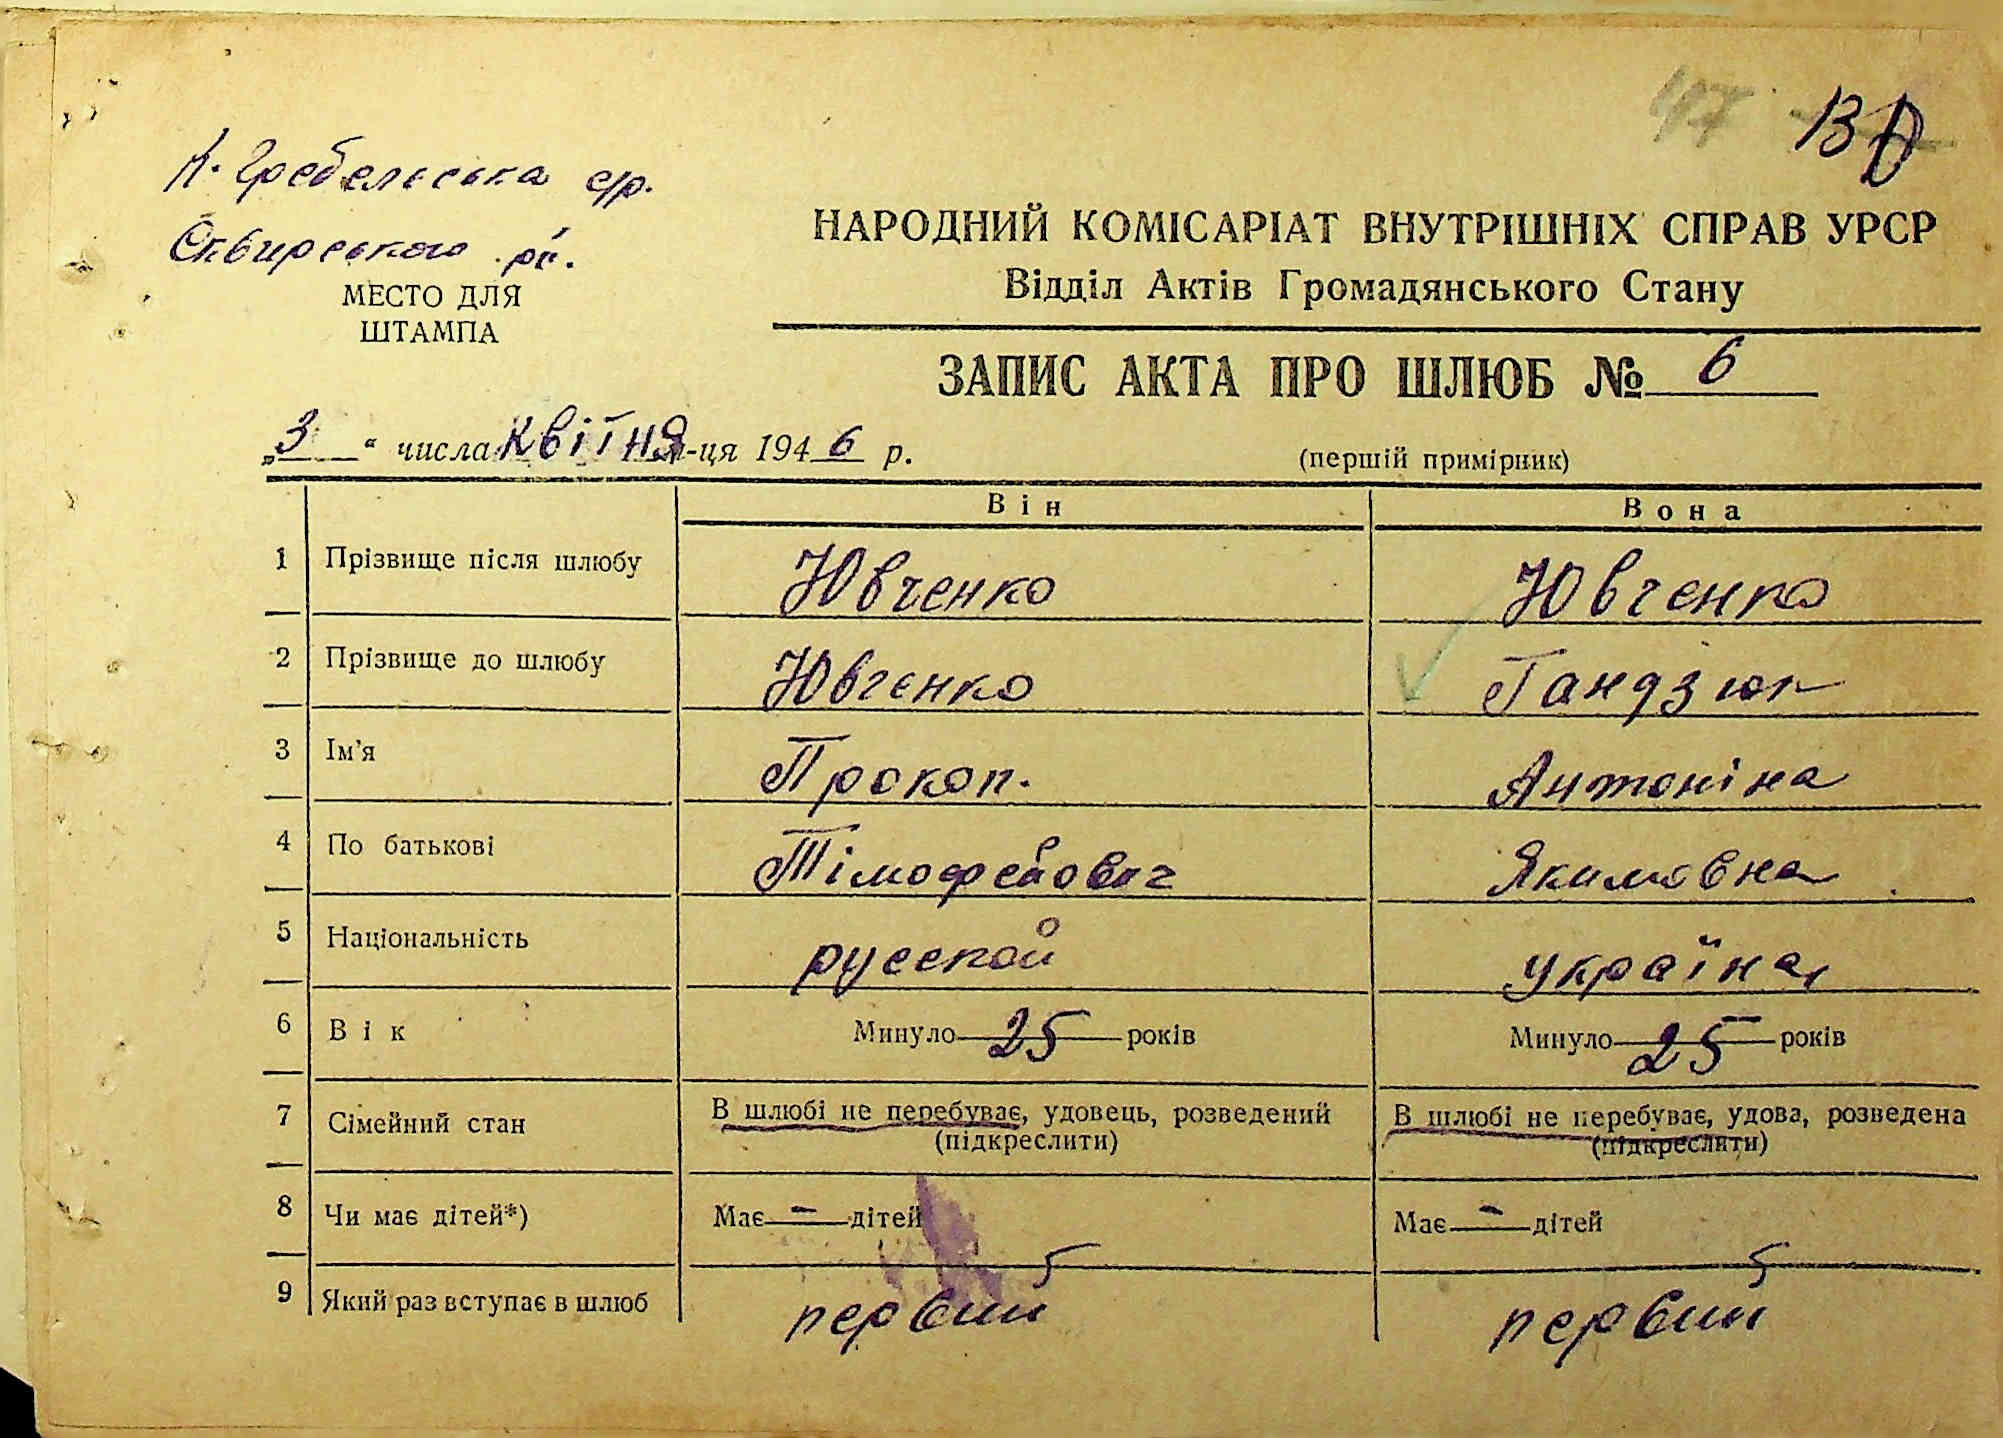 47 13
Гребельська с/р.
Сквирського р.
МЕСТО ДЛЯ
ШТАМПА
НАРОДНИЙ КОМІСАРІАТ ВНУТРІШНІХ СПРАВ УРСР
Відділ Актів Громадянського Стану
ЗАПИС АКТА ПРО ШЛЮБ № 6
„3“ числа квітня м-ця 1946 р.
(першій примірник)
Він Вона
1 Прізвище після шлюбу Ювченко Ювченко
2 Прізвище до шлюбу Ювченко Гандзюк
3 Ім’я Прокоп. Антоніна
4 По батькові Тімофейович Якимовна
5 Національність русской україна
6 Вік Минуло 25 років Минуло 25 років
7 Сімейний стан В шлюбі не перебуває, удовець, розведений В шлюбі не перебуває, удова, розведена
(підкреслити) (підкреслити)
8 Чи має дітей*) Має — дітей Має — дітей
9 Який раз вступає в шлюб первий первий